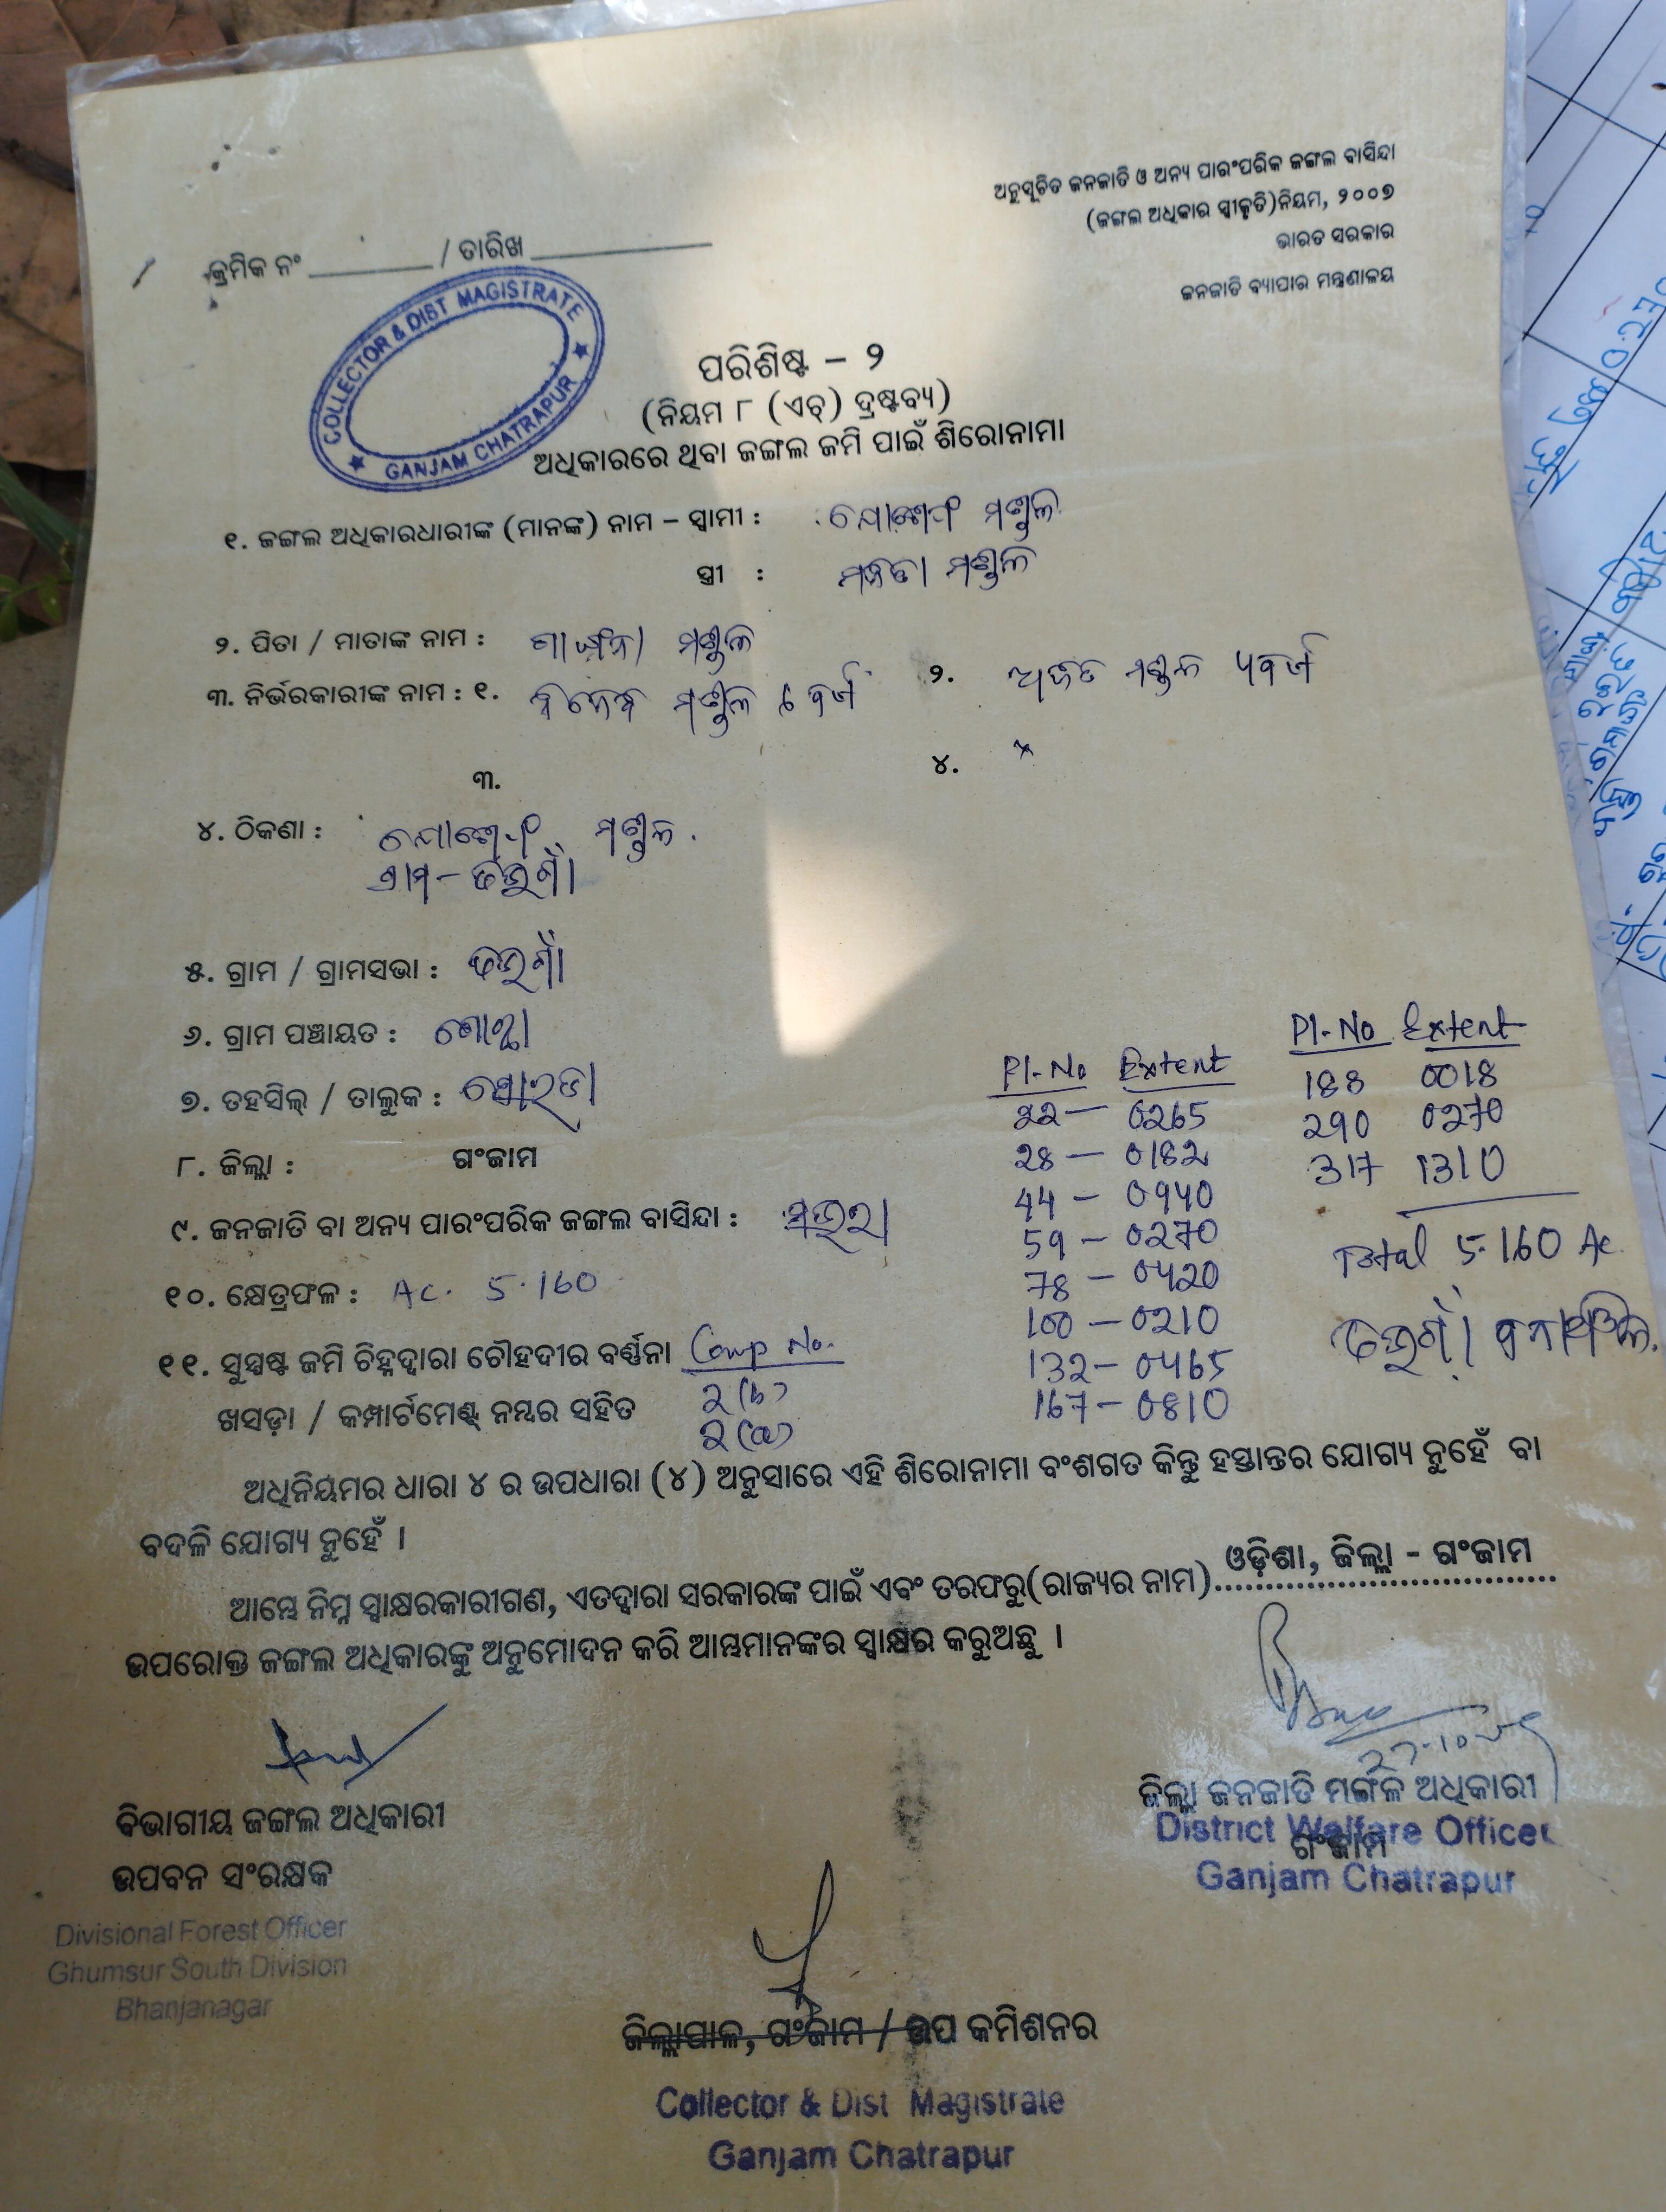 ଅନୁସୂଚିତ ଜନଜାତି ଓ ଅନ୍ୟ ପାରଂପରିକ ଜଙ୍ଗଲ ବାସିନ୍ଦା
(ଜଙ୍ଗଲ ଅଧିକାର ସ୍ୱୀକୃତି)ନିୟମ, ୨୦୦୭
ଭାରତ ସରକାର
ଜନଜାତି ବ୍ୟାପାର ମନ୍ତ୍ରଣାଳୟ
କ୍ରମିକ ନଂ / ତାରିଖ
COLLECTOR & DIST MAGISTRATE
GANJAM CHATRAPUR
ପରିଶିଷ୍ଟ – ୨
(ନିୟମ ୮ (ଏଚ୍) ଦ୍ରଷ୍ଟବ୍ୟ)
ଅଧିକାରରେ ଥିବା ଜଙ୍ଗଲ ଜମି ପାଇଁ ଶିରୋନାମା
୧. ଜଙ୍ଗଲ ଅଧିକାରଧାରୀଙ୍କ (ମାନଙ୍କ) ନାମ – ସ୍ୱାମୀ : ମଣ୍ଡଳ
ସ୍ତ୍ରୀ : ମଣ୍ଡଳ
୨. ପିତା / ମାତାଙ୍କ ନାମ : ମଣ୍ଡଳ
୩. ନିର୍ଭରକାରୀଙ୍କ ନାମ : ୧. ମଣ୍ଡଳ ୬ ବର୍ଷ ୨. ମଣ୍ଡଳ ୪ବର୍ଷ
୩. ୪. ×
୪. ଠିକଣା : ମଣ୍ଡଳ.
ଗ୍ରାମ – ଢଉଗାଁ
୫. ଗ୍ରାମ / ଗ୍ରାମସଭା : ଢଉଗାଁ
୬. ଗ୍ରାମ ପଞ୍ଚାୟତ :
୭. ତହସିଲ୍ / ତାଲୁକ : ସୋରଡା
୮. ଜିଲ୍ଲା : ଗଂଜାମ
୯. ଜନଜାତି ବା ଅନ୍ୟ ପାରଂପରିକ ଜଙ୍ଗଲ ବାସିନ୍ଦା : ସଉରା
୧୦. କ୍ଷେତ୍ରଫଳ : Ac. 5.160
Pl.No Extent
22 – 0265
28 – 0182
44 – 0940
59 – 0270
78 – 0420
100 – 0210
132 – 0465
167 – 0810
Pl.No Extent
188 0018
290 0270
317 1310
Total 5.160 Ac.
ଢଉଗାଁ ବନାଞ୍ଚଳ.
୧୧. ସୁସ୍ପଷ୍ଟ ଜମି ଚିହ୍ନଦ୍ୱାରା ଚୌହଦୀର ବର୍ଣ୍ଣନା Comp No.
ଖସଡ଼ା / କମ୍ପାର୍ଟମେଣ୍ଟ୍ ନମ୍ବର ସହିତ 2(b)
2(a)
ଅଧିନିୟମର ଧାରା ୪ ର ଉପଧାରା (୪) ଅନୁସାରେ ଏହି ଶିରୋନାମା ବଂଶଗତ କିନ୍ତୁ ହସ୍ତାନ୍ତର ଯୋଗ୍ୟ ନୁହେଁ ବା
ବଦଳି ଯୋଗ୍ୟ ନୁହେଁ ।
ଆମ୍ଭେ ନିମ୍ନ ସ୍ୱାକ୍ଷରକାରୀଗଣ, ଏତଦ୍ୱାରା ସରକାରଙ୍କ ପାଇଁ ଏବଂ ତରଫରୁ(ରାଜ୍ୟର ନାମ) ଓଡ଼ିଶା, ଜିଲ୍ଲା - ଗଂଜାମ
ଉପରୋକ୍ତ ଜଙ୍ଗଲ ଅଧିକାରଙ୍କୁ ଅନୁମୋଦନ କରି ଆମ୍ଭମାନଙ୍କର ସ୍ୱାକ୍ଷର କରୁଅଛୁ ।
ବିଭାଗୀୟ ଜଙ୍ଗଲ ଅଧିକାରୀ
ଉପବନ ସଂରକ୍ଷକ
Divisional Forest Officer
Ghumsur South Division
Bhanjanagar
ଜିଲ୍ଲା ଜନଜାତି ମଙ୍ଗଳ ଅଧିକାରୀ
ଗଂଜାମ
District Welfare Officer
Ganjam Chatrapur
ଜିଲ୍ଲାପାଳ, ଗଂଜାମ / ଉପ କମିଶନର
Collector & Dist Magistrate
Ganjam Chatrapur